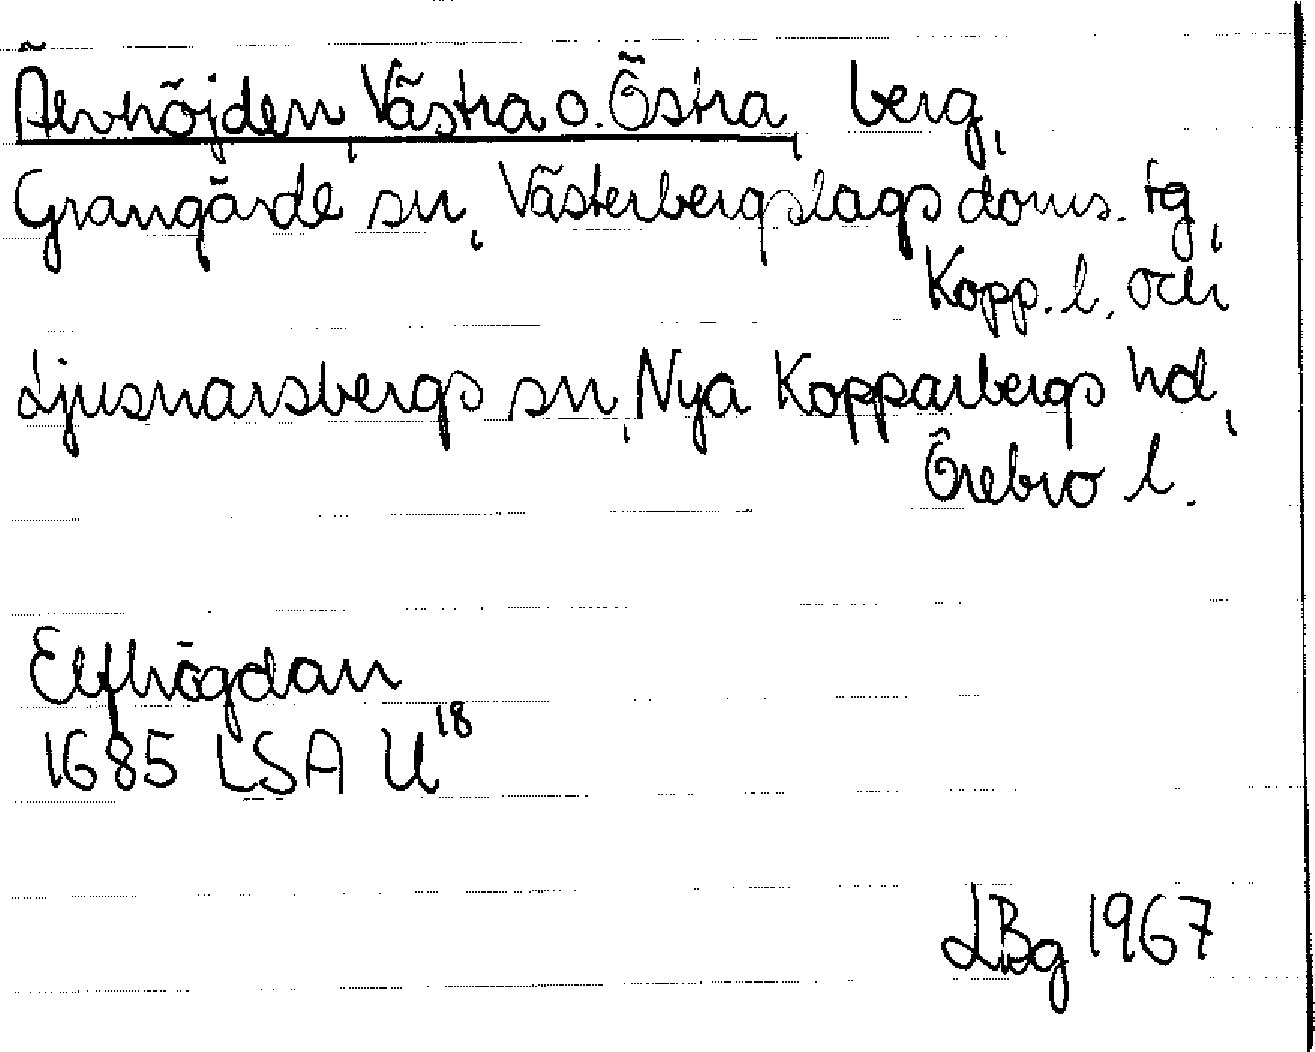 Älvhöjden, Västra o. Östra, berg,
Grangärde sn, Västerbergslags doms. tg,
Kopp. l. och
Ljusnarsbergs sn, Nya Kopparbergs hd,
Örebro l.
Elfhögdan
1685 LSA U18
LBg 1967